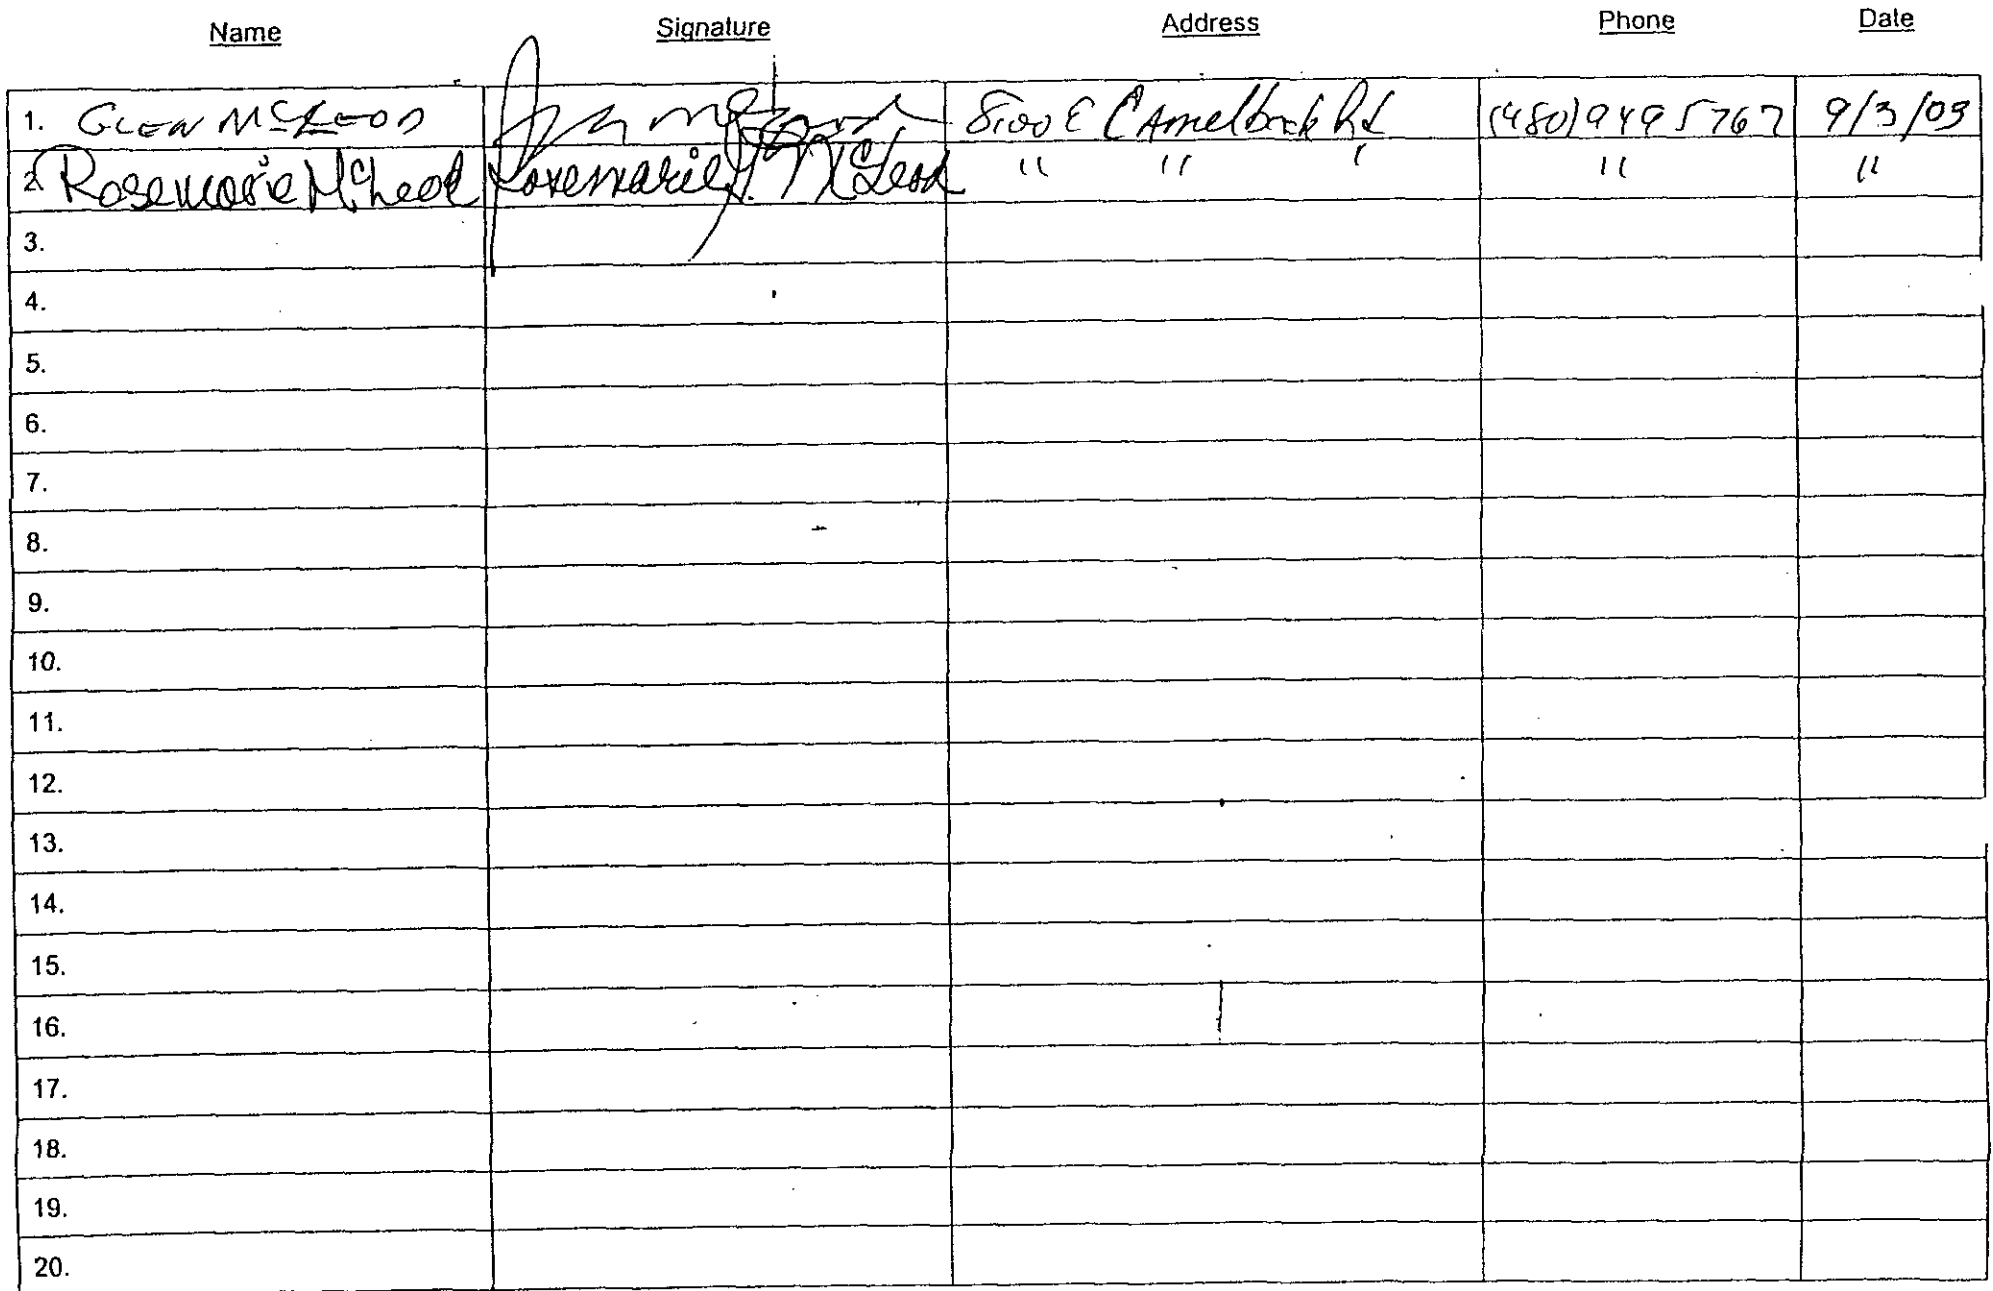 Name Signature Address Phone Date
1. GLEN McLEOD 8100 E CAmelback Rd (480) 949 5767 9/3/09
2. Rosemarie McLeod Rosemarie J. McLeod " " " " "
3.
4.
5.
6.
7.
8.
9.
10.
11.
12.
13.
14.
15.
16.
17.
18.
19.
20.